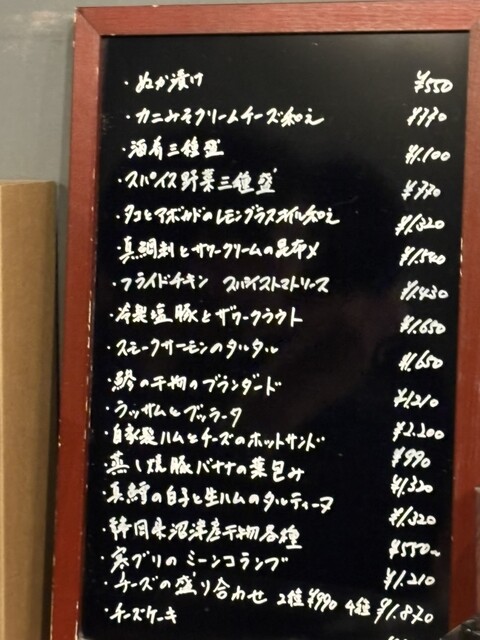 ・ぬか漬け ¥550
・カニみそクリームチーズ和え ¥770
・酒肴三種盛 ¥1.100
・スパイス野菜三種盛 ¥770
・タコとアボカドのレモングラスオイル和え ¥1.320
・真鯛刺とサワークリームの昆布〆 ¥1.540
・フライドチキン スパイストマトソース ¥1.430
・冷製塩豚とザワークラウト ¥1.650
・スモークサーモンのタルタル ¥1.650
・鯵の干物のブランダード ¥1.210
・ラッサムとブッラータ ¥2.200
・自家製ハムとチーズのホットサンド ¥990
・蒸し焼豚バナナの葉包み ¥1.320
・真鱈の白子と生ハムのタルティーヌ ¥1.320
・静岡県沼津産干物各種 ¥550~
・寒ブリのミーンコランブ ¥1.210
・チーズの盛り合わせ 2種¥990 4種¥1.870
・チーズケーキ